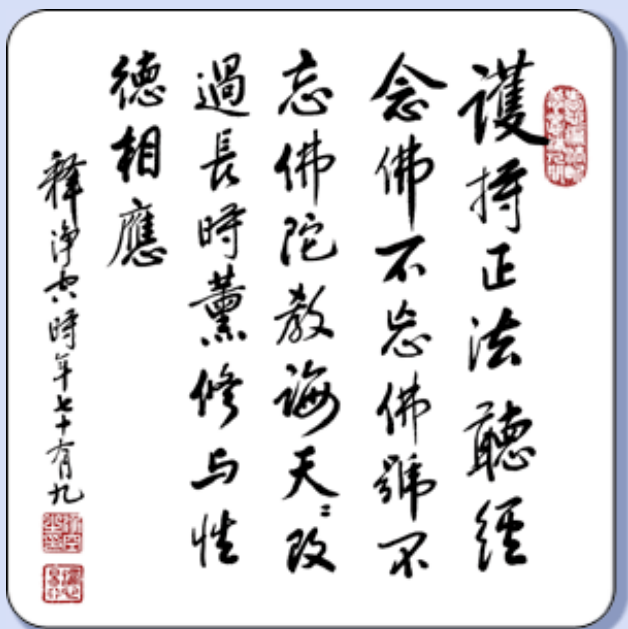 護持正法聽經
念佛不忘佛號不
忘佛陀教誨天〻改
過長時薰修与性
德相應
釋淨空時年七十有九